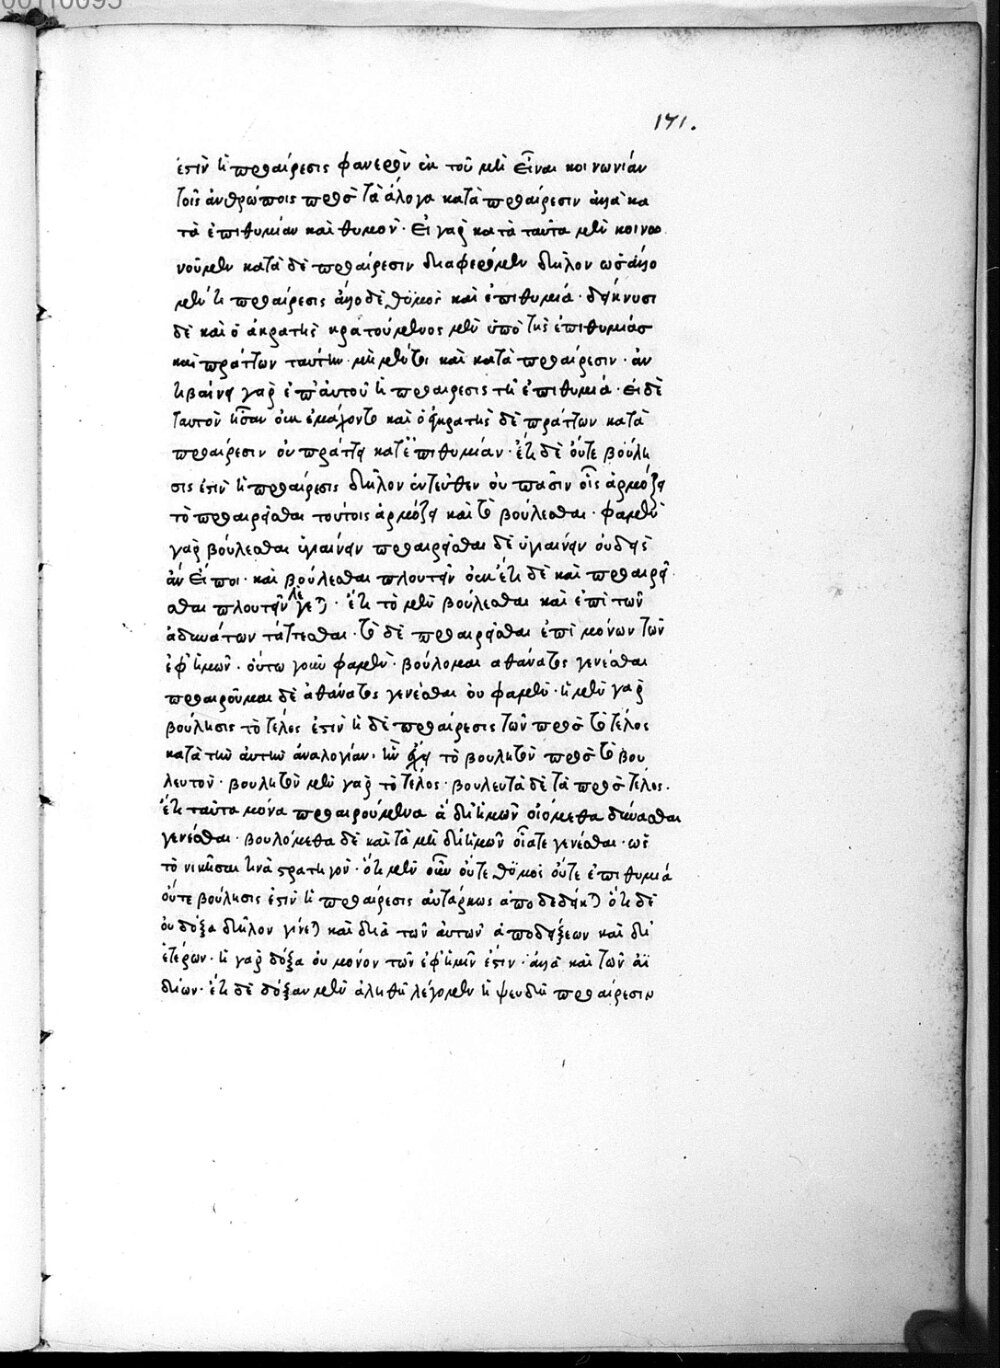 171.
ἐστὶν ἡ προαίρεσις φανερὸν ἐκ τοῦ μὴ εἶναι κοινωνίαν
τοῖς ἀνθρώποις πρὸς τὰ ἄλογα κατὰ προαίρεσιν ἀλλὰ κα
τὰ ἐπιθυμίαν καὶ θυμόν· Εἰ γὰρ κατὰ ταῦτα μὲν κοινω
νοῦμεν κατὰ δὲ προαίρεσιν διαφέρομεν δῆλον ὡς ἄλλο
μὲν ἡ προαίρεσις ἄλλο δὲ θυμὸς καὶ ἐπιθυμία· δείκνυσι
δὲ καὶ ὁ ἀκρατὴς κρατούμενος μὲν ὑπὸ τῆς ἐπιθυμίας
καὶ πράττων ταύτην· μὴ μέντοι καὶ κατὰ προαίρεσιν· ἀν
τιβαίνει γὰρ ἐπ' αὐτοῦ ἡ προαίρεσις τῇ ἐπιθυμίᾳ· εἰ δὲ
ταυτὸν ἦσαν οὐκ ἐμάχοντο καὶ ὁ ἐγκρατὴς δὲ πράττων κατὰ
προαίρεσιν οὐ πράττει κατ' ἐπιθυμίαν· ἔτι δὲ οὔτε βούλη
σις ἐστὶν ἡ προαίρεσις δῆλον ἐντεῦθεν οὐ πᾶσιν οἷς ἁρμόζει
τὸ προαιρεῖσθαι τούτοις ἁρμόζει καὶ τὸ βούλεσθαι· φαμὲν
γὰρ βούλεσθαι ὑγιαίνειν προαιρεῖσθαι δὲ ὑγιαίνειν οὐδεὶς
ἂν εἴποι· καὶ βούλεσθαι πλουτεῖν οὐκ ἔτι δὲ καὶ προαιρεῖ
σθαι πλουτεῖν λέγεται· ἔτι τὸ μὲν βούλεσθαι καὶ ἐπὶ τῶν
ἀδυνάτων τάττεσθαι· τὸ δὲ προαιρεῖσθαι ἐπὶ μόνων τῶν
ἐφ' ἡμῶν· οὕτω γοῦν φαμὲν· βούλομαι ἀθάνατος γενέσθαι
προαιροῦμαι δὲ ἀθάνατος γενέσθαι οὐ φαμὲν· ἡ μὲν γὰρ
βούλησις τὸ τέλος ἐστὶν ἡ δὲ προαίρεσις τῶν πρὸς τὸ τέλος
κατὰ τὴν αὐτὴν ἀναλογίαν· ἣν ἔχει τὸ βουλητὸν πρὸς τὸ βου
λευτόν· βουλητὸν μὲν γὰρ τὸ τέλος· βουλευτὰ δὲ τὰ πρὸς τέλος.
ἔτι ταῦτα μόνα προαιρούμενα ἃ δι' ἡμῶν οἰόμεθα δύνασθαι
γενέσθαι· βουλόμεθα δὲ καὶ τὰ μὴ δι' ἡμῶν οἷά τε γενέσθαι· ὡς
τὸ νικῆσαι τινὰ στρατηγόν· ὅτι μὲν οὖν οὔτε θυμὸς οὔτε ἐπιθυμία
οὔτε βούλησις ἐστὶν ἡ προαίρεσις αὐτάρκως ἀποδέδεικται ὅτι δὲ
οὐ δόξα δῆλον γίνεται καὶ διὰ τῶν αὐτῶν ἀποδείξεων καὶ δι'
ἑτέρων· ἡ γὰρ δόξα οὐ μόνον τῶν ἐφ' ἡμῖν ἐστιν· ἀλλὰ καὶ τῶν ἀϊ
δίων· ἔτι δὲ δόξαν μὲν ἀληθῆ λέγομεν ἢ ψευδῆ προαίρεσιν